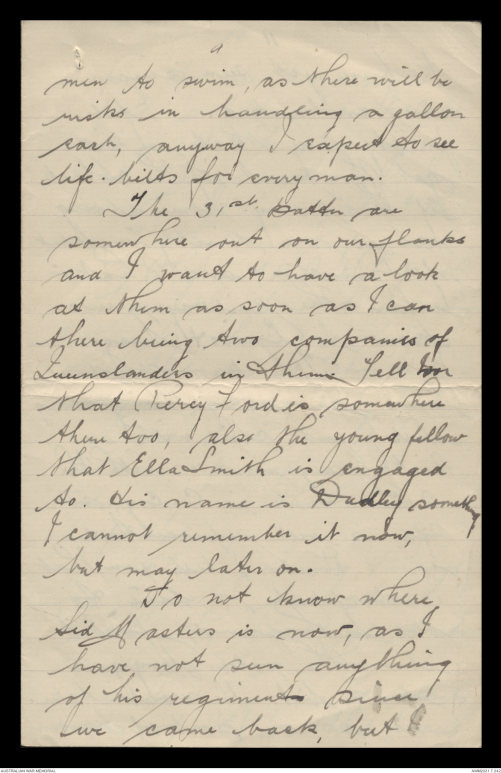 men to swim, as there will be
risks in handling a gallon
each, anyway I expect to see
life-belts for every man.
The 31st Battn are
somewhere out on our flanks
and I want to have a look
at them as soon as I can
there being two companies of
Queenslanders in them Tell
that Percy Ford is somewhere
there too, also the young fellow
that Ella Smith is engaged
to. His name is Dudley something
I cannot remember it now,
but may later on.
Do not know where
Sid Masters is now, as I
have not seen anything
of his regiment since
we came back, but I
AUSTRALIAN WAR MEMORIAL